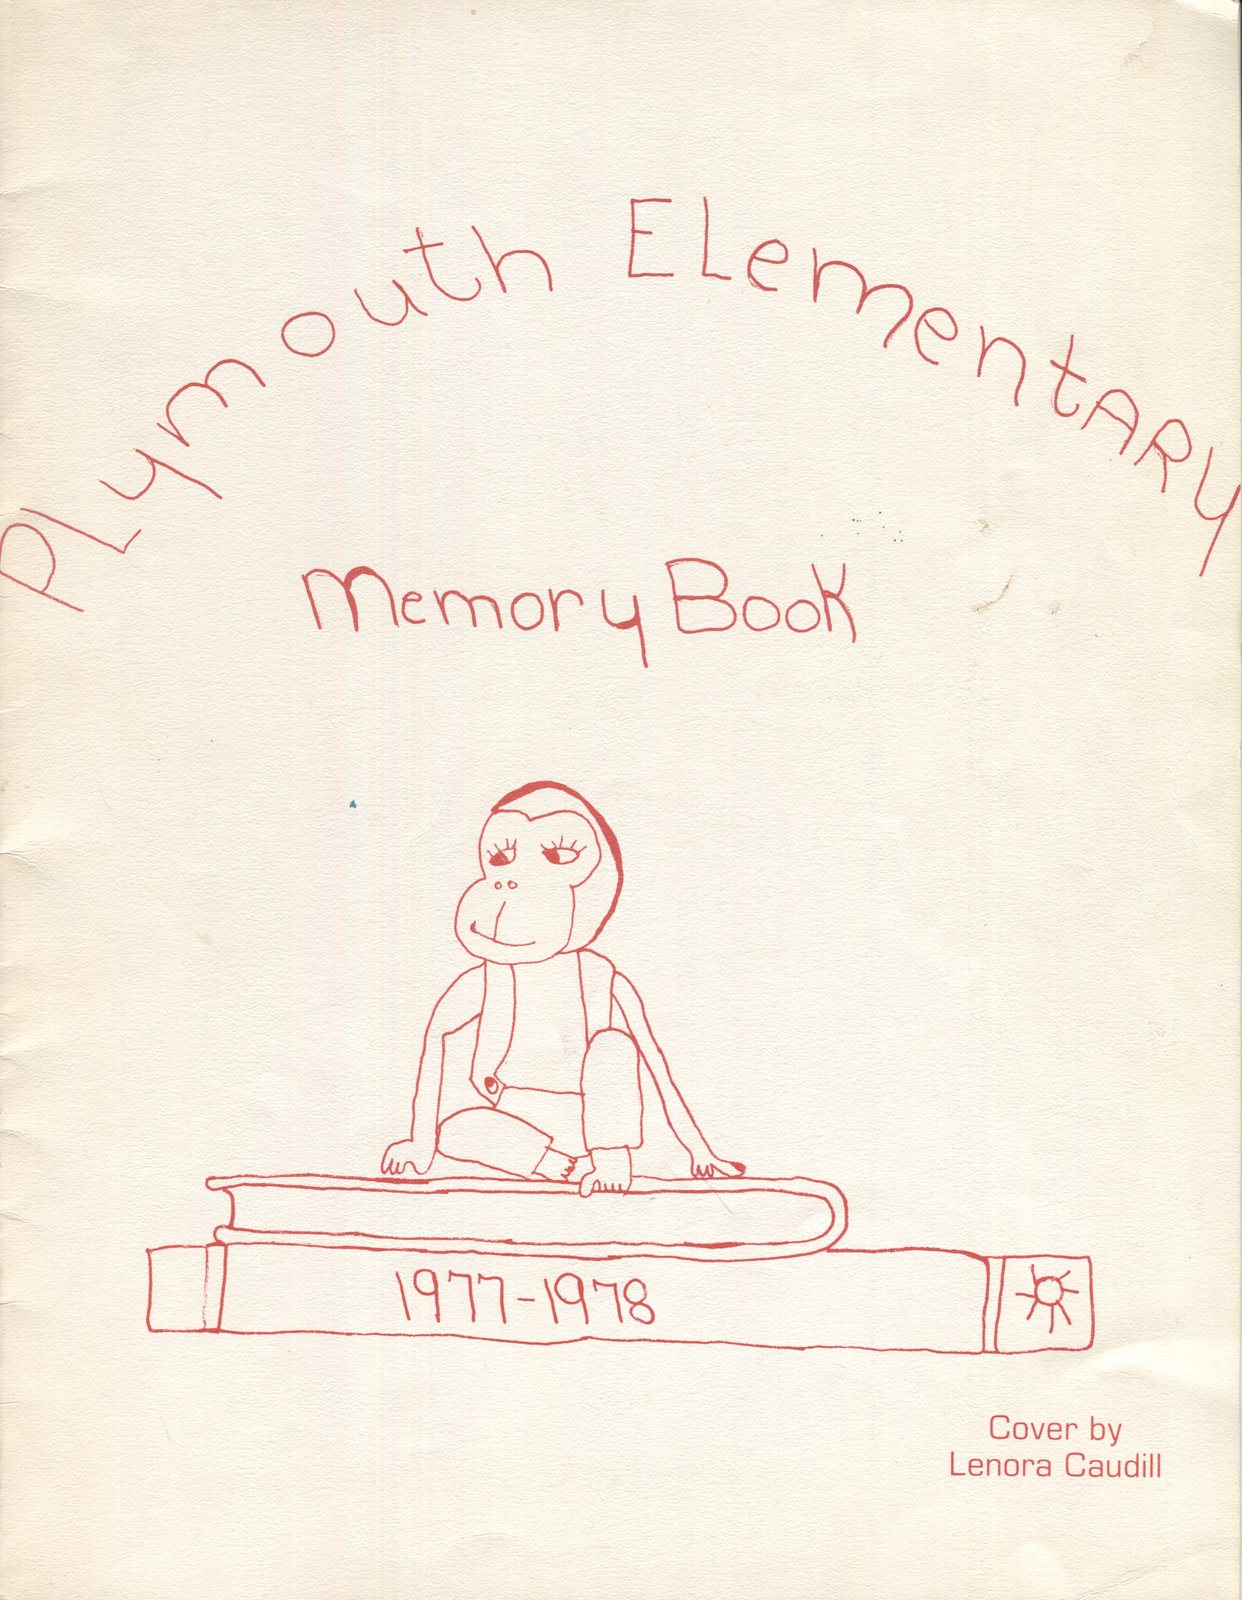 PLymouth ELementARY
Memory Book
1977-1978
Cover by
Lenora Caudill